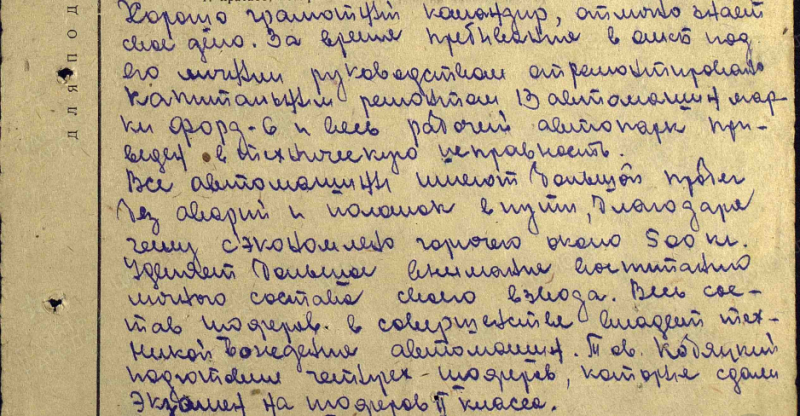 Хорошо грамотный командир, отлично знает
свое дело. За время пребывания в части под
его личным руководством отремонтировано
капитальным ремонтом 13 автомашин мар-
ки Форд-6 и весь рабочий автопарк при-
веден в техническую исправность.
Все автомашины имеют большой пробег
без аварий и поломок в пути, благодаря
чему сэкономлено горючего около 500 кг.
Уделяет больше внимание воспитанию
личного состава своего взвода. Весь сос-
тав шоферов в совершенстве владеет тех-
никой вождения автомашин. Тов. Кобяцкий
подготовил четырех шоферов, которые сдали
экзамен на шоферов II класса.
для под